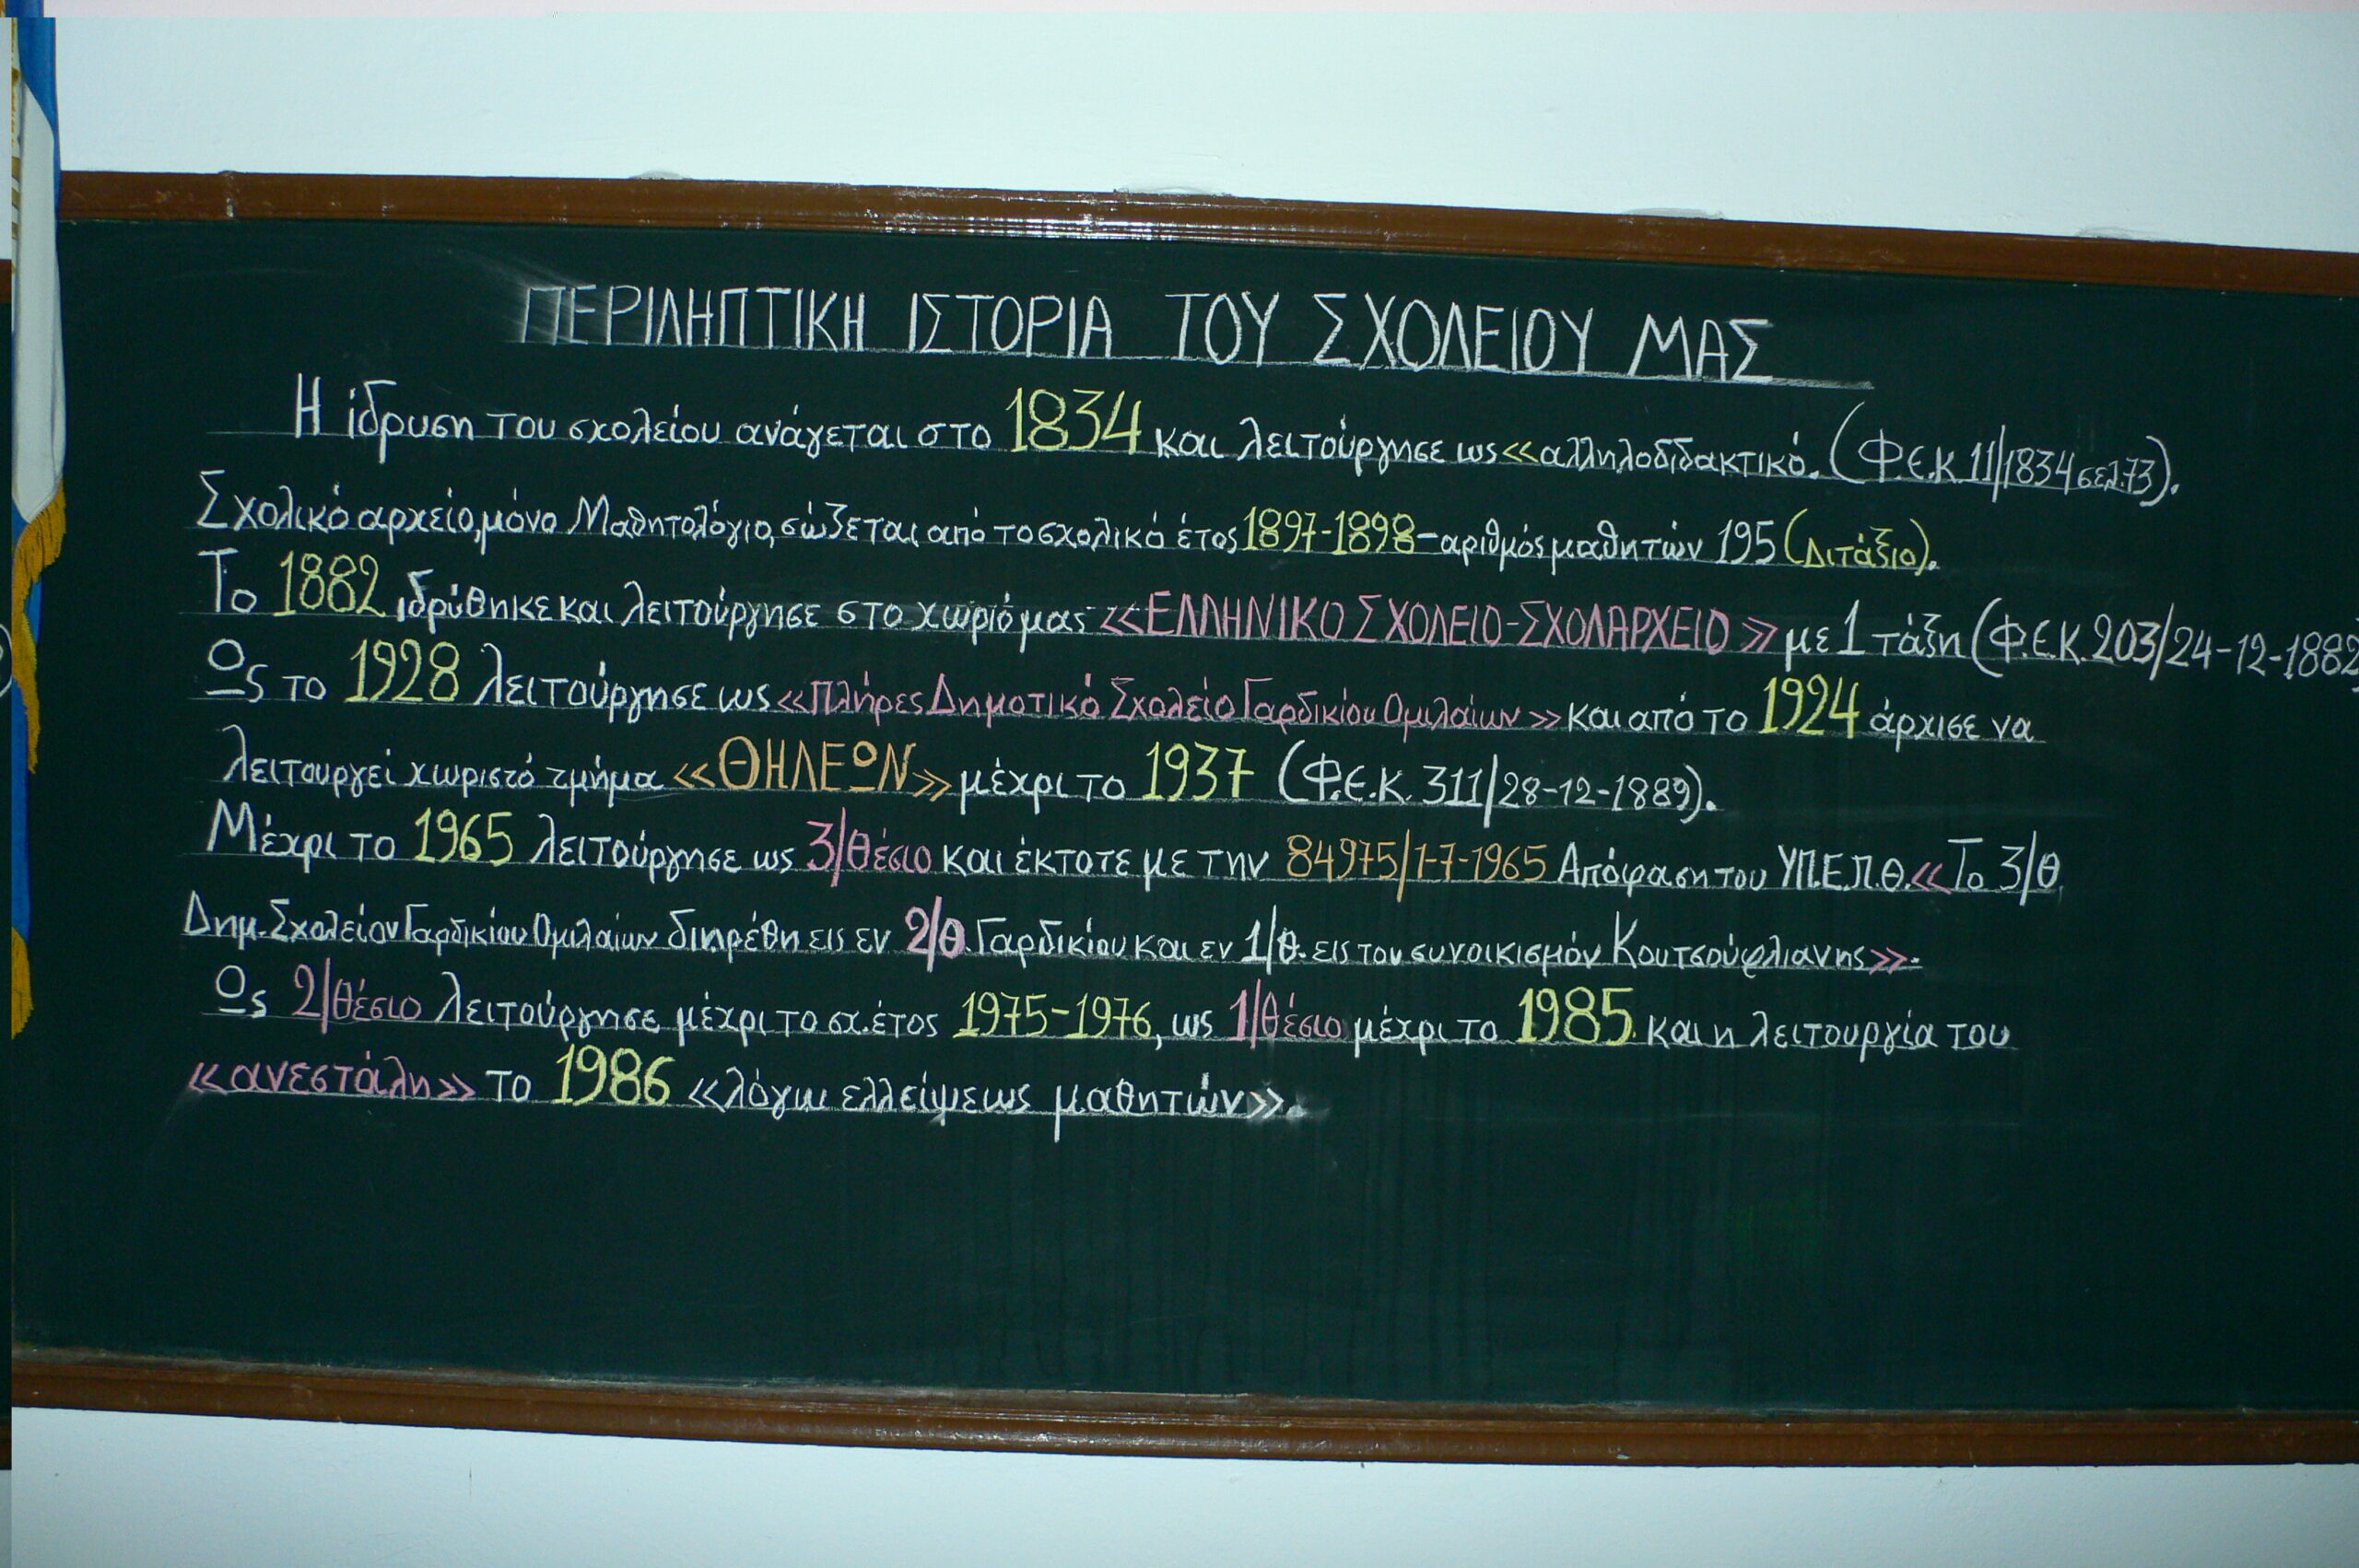 ΠΕΡΙΛΗΠΤΙΚΗ ΙΣΤΟΡΙΑ ΤΟΥ ΣΧΟΛΕΙΟΥ ΜΑΣ
Η ίδρυση του σχολείου ανάγεται στο 1834 και λειτούργησε ως <<αλληλοδιδακτικό. (Φ.Ε.Κ 11/1834 σελ.73).
Σχολικό αρχείο, μόνο Μαθητολόγιο, σώζεται από το σχολικό έτος 1897-1898-αριθμός μαθητών 195 (Διτάξιο).
Το 1882 ιδρύθηκε και λειτούργησε στο χωριό μας <<ΕΛΛΗΝΙΚΟ ΣΧΟΛΕΙΟ-ΣΧΟΛΑΡΧΕΙΟ>> με 1 τάξη (Φ.Ε.Κ. 203/24-12-1882)
Ως το 1928 λειτούργησε ως <<Πλήρες Δημοτικό Σχολείο Γαρδικίου Ομιλαίων>> και από το 1924 άρχισε να
λειτουργεί χωριστό τμήμα <<ΘΗΛΕΩΝ>> μέχρι το 1937 (Φ.Ε.Κ. 311/28-12-1889).
Μέχρι το 1965 λειτούργησε ως 3/θέσιο και έκτοτε με την 84975/1-7-1965 Απόφαση του ΥΠ.Ε.Π.Θ.<<Το 3/Θ
Δημ. Σχολείον Γαρδικίου Ομιλαίων διηρέθη εις εν 2/θ. Γαρδικίου και εν 1/θ. εις τον συνοικισμόν Κουτσούφλιανης>>.
Ως 2/θέσιο λειτούργησε μέχρι το σχ. έτος 1975-1976, ως 1/θέσιο μέχρι το 1985 και η λειτουργία του
<<ανεστάλη>> το 1986 <<λόγω ελλείψεως μαθητών>>.